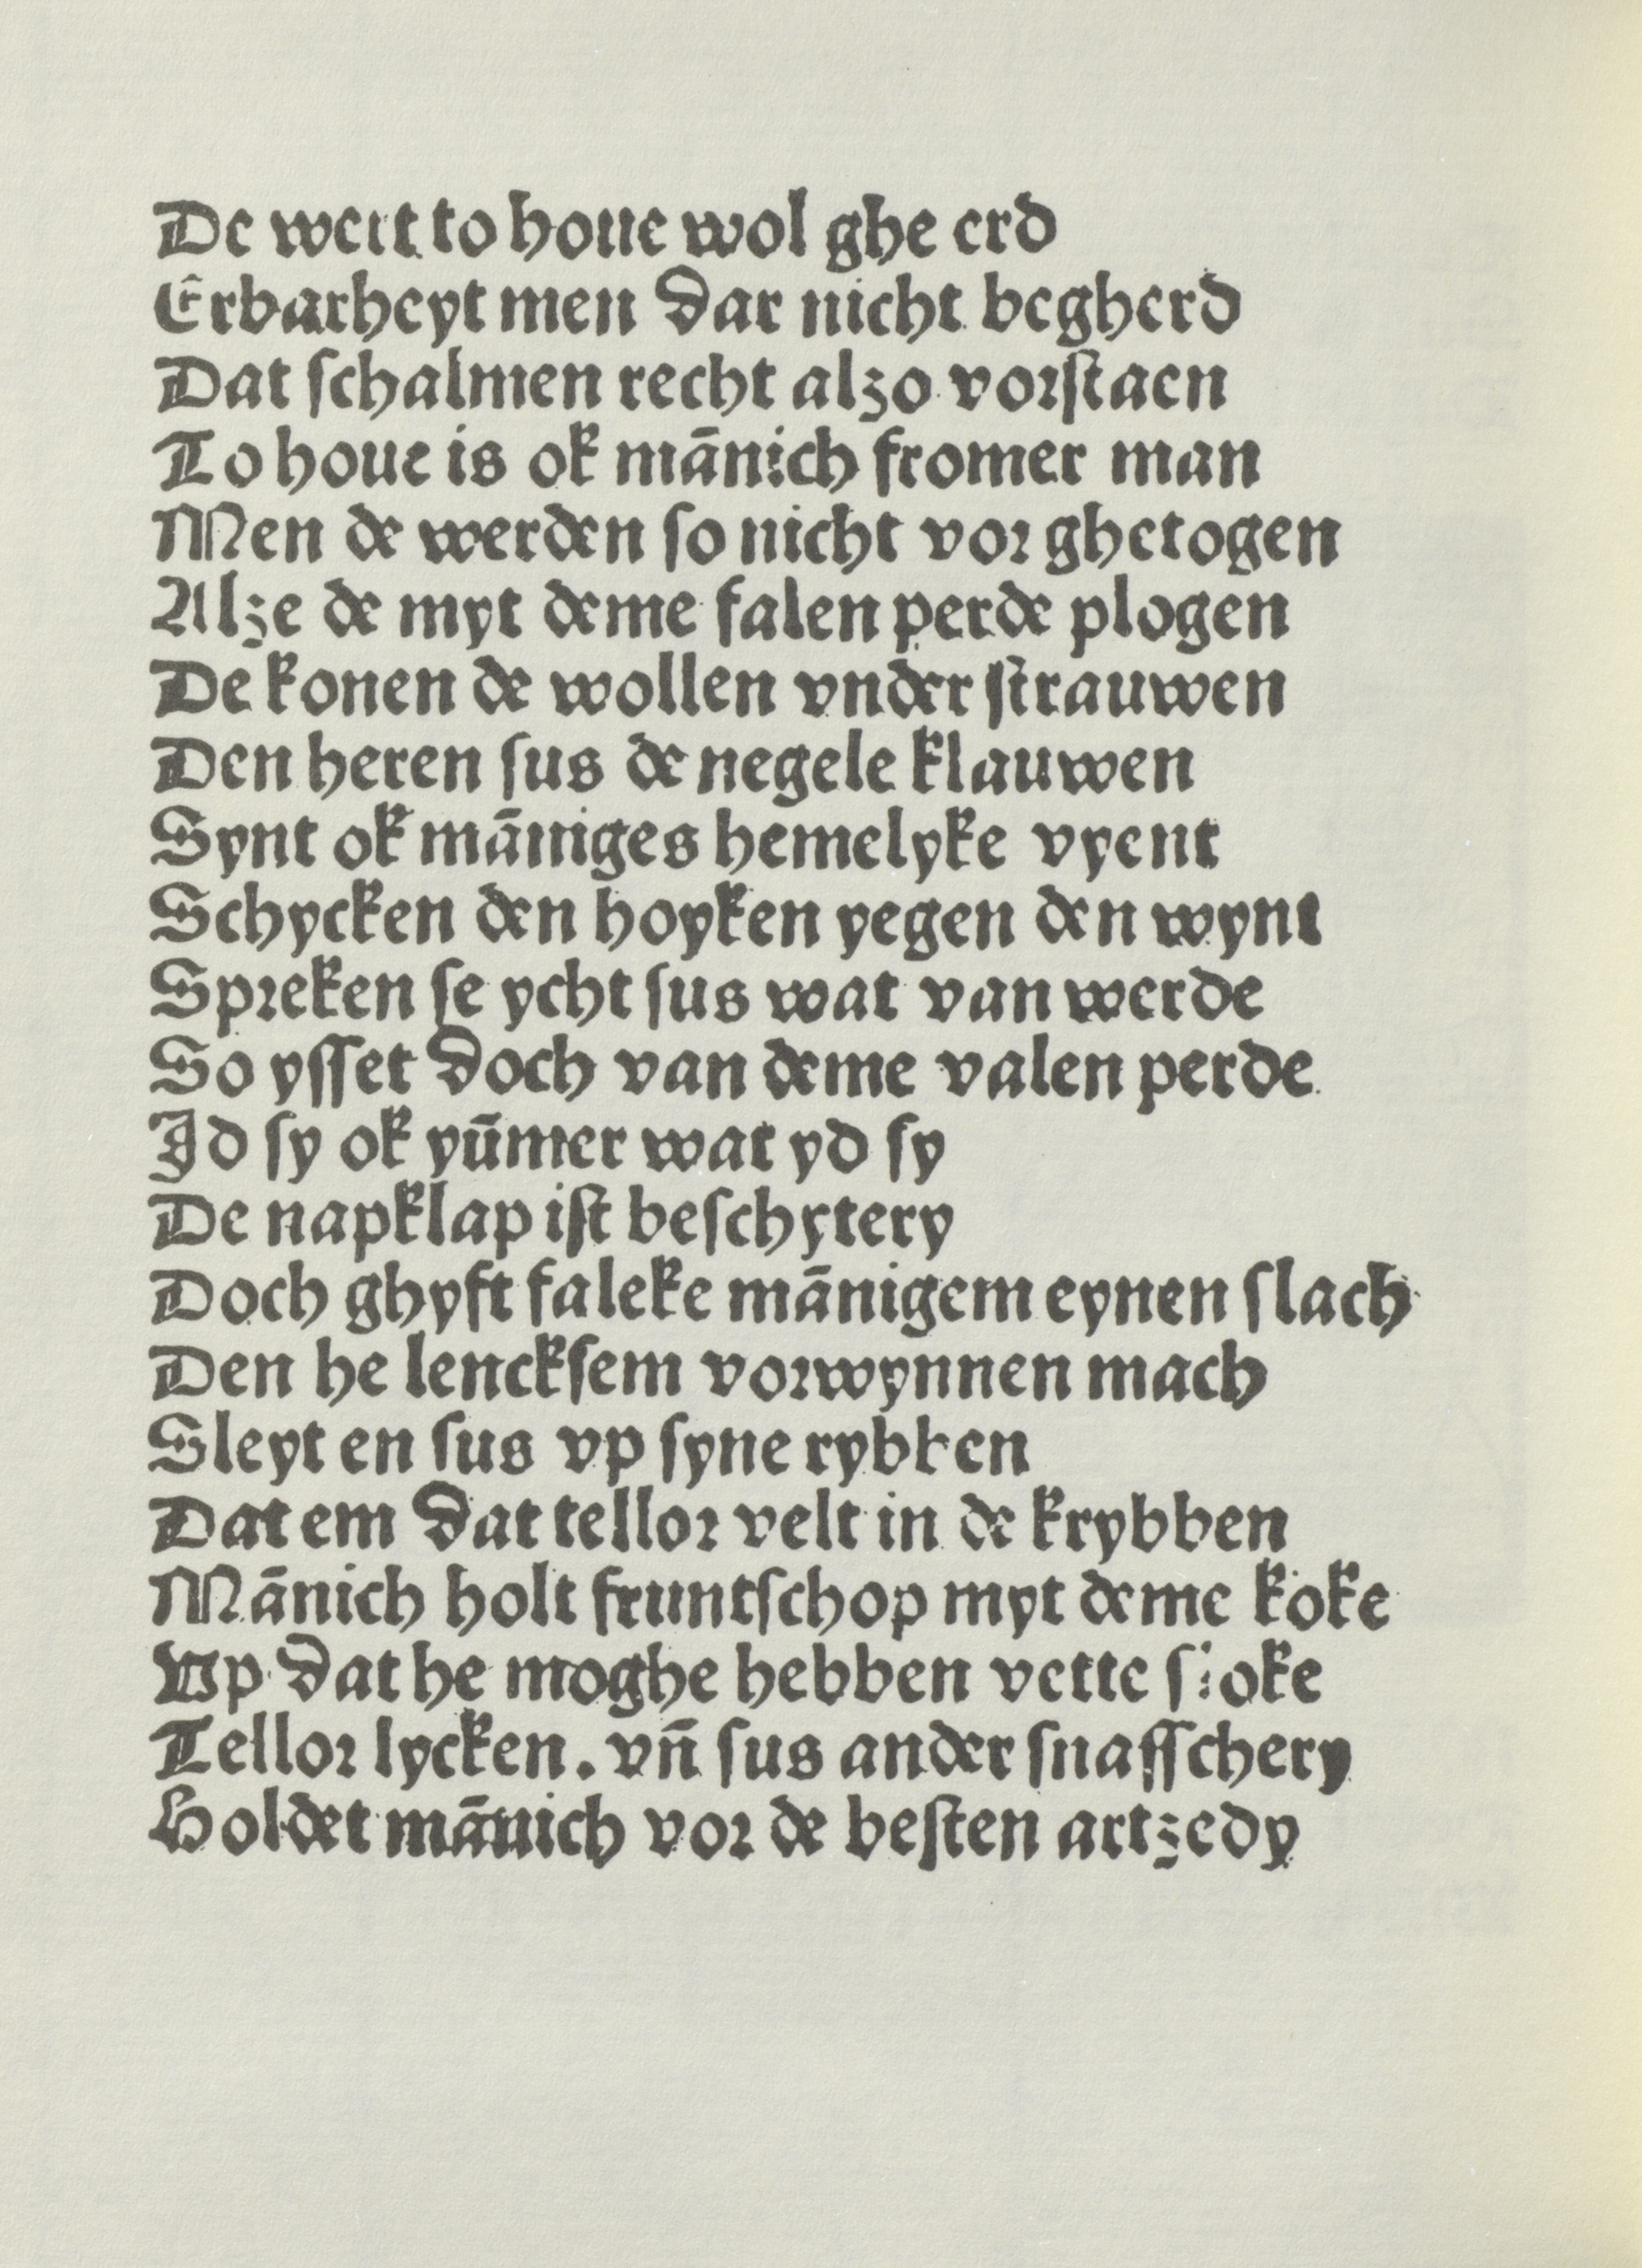 De wert to houe wol ghe erd
Erbarheyt men dar nicht begherd
Dat schalmen recht alzo vorstaen
To houe is ok mānich fromer man
Men de werden so nicht vor ghetogen
Alze de myt deme falen perde plogen
De konen de wollen vnder strauwen
Den heren sus de negele klauwen
Synt ok māniges hemelyke vyent
Schycken den hoyken yegen den wynt
Spreken se ycht sus wat van werde
So ysset doch van deme valen perde
Id sy ok yūmer wat yd sy
De napklap ist beschytery
Doch ghyft faleke mānigem eynen slach
Den he lencksem vorwynnen mach
Sleyt en sus vp syne rybben
Dat em dat tellor velt in de krybben
Mānich holt fruntschop myt deme koke
Vp dat he moghe hebben vette
Tellor lycken. vn̄ sus ander snaffschery
Holdet mānich vor de besten artzedy